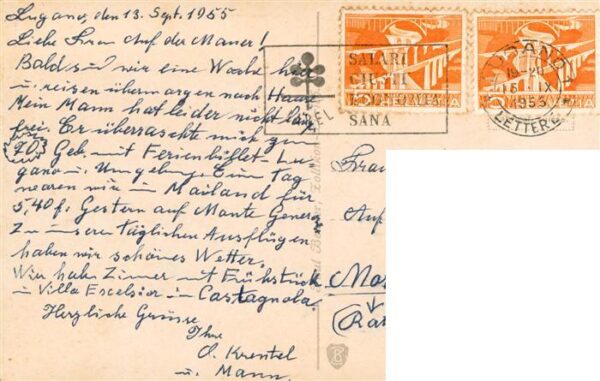 Lugano, den 13. Sept. 1955
Liebe Frau Auf der Mauer!
Bald sind wir eine Woche hier
u. reisen übermorgen nach Haus.
Mein Mann hat leider nicht länger
frei. Er überraschte mich zum
70. Geb. mit Ferienbillet Lu-
gano u. Umgebung. Einen Tag
waren wir in Mailand für
5,40 f. Gestern auf Monte Generoso
Zu unseren täglichen Ausflügen
haben wir schönes Wetter.
Wir haben Zimmer mit Frühstück
in Villa Excelsior in Castagnola.
Herzliche Grüsse
Ihre
O. Krentel
u. Mann.
SALARI
CIVILI
ECONOMIA
SANA
LUGANO
1955
LETTERE
Frau
Auf
Mo
(Rat